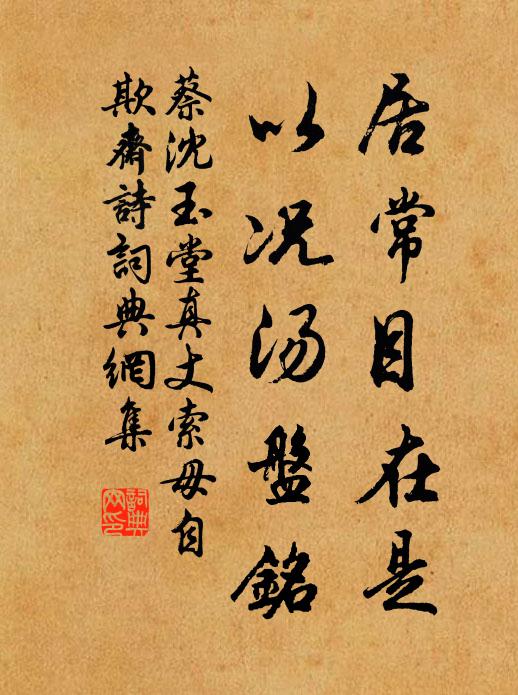 居常目在是
以况汤盤銘
蔡沈玉堂真丈索毋自
欺齋詩詞典網集
詞典網印